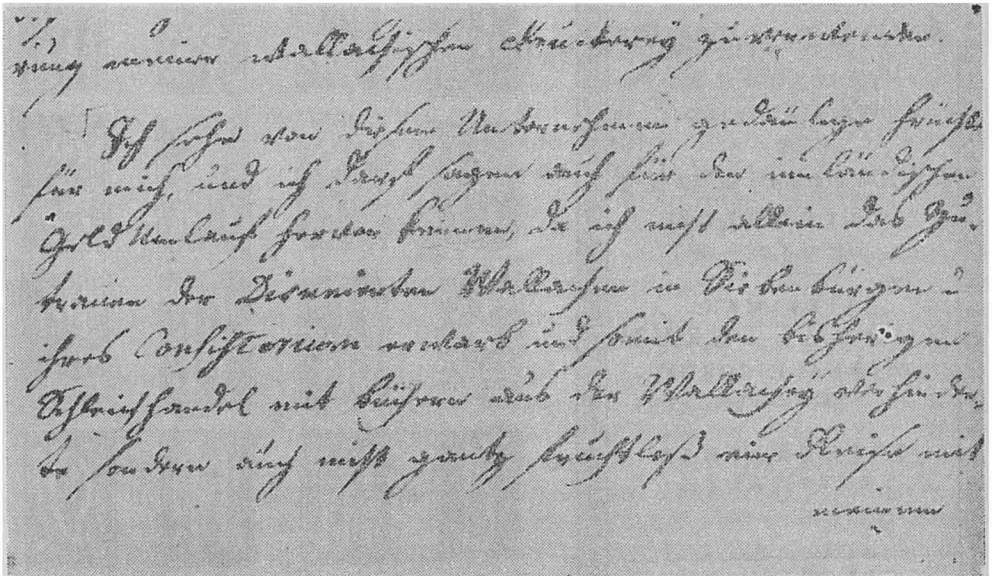 rung meiner wallachischen Druckerey zu verwenden.
Ich sehe von diesem Unternehmen Früchte
für mich, und ich darf sagen auch für den inländischen
Geld Umlauf hervor keimen, da ich nicht allein das Zu-
trauen der Disunirten Wallachen in Siebenbürgen u
ihres Consistorium erwarb und somit den bisherigen
Schleichhandel mit büchern aus der Wallachey verhinder-
te sondern auch nicht gantz fruchtloß eine Reise mit
meinem